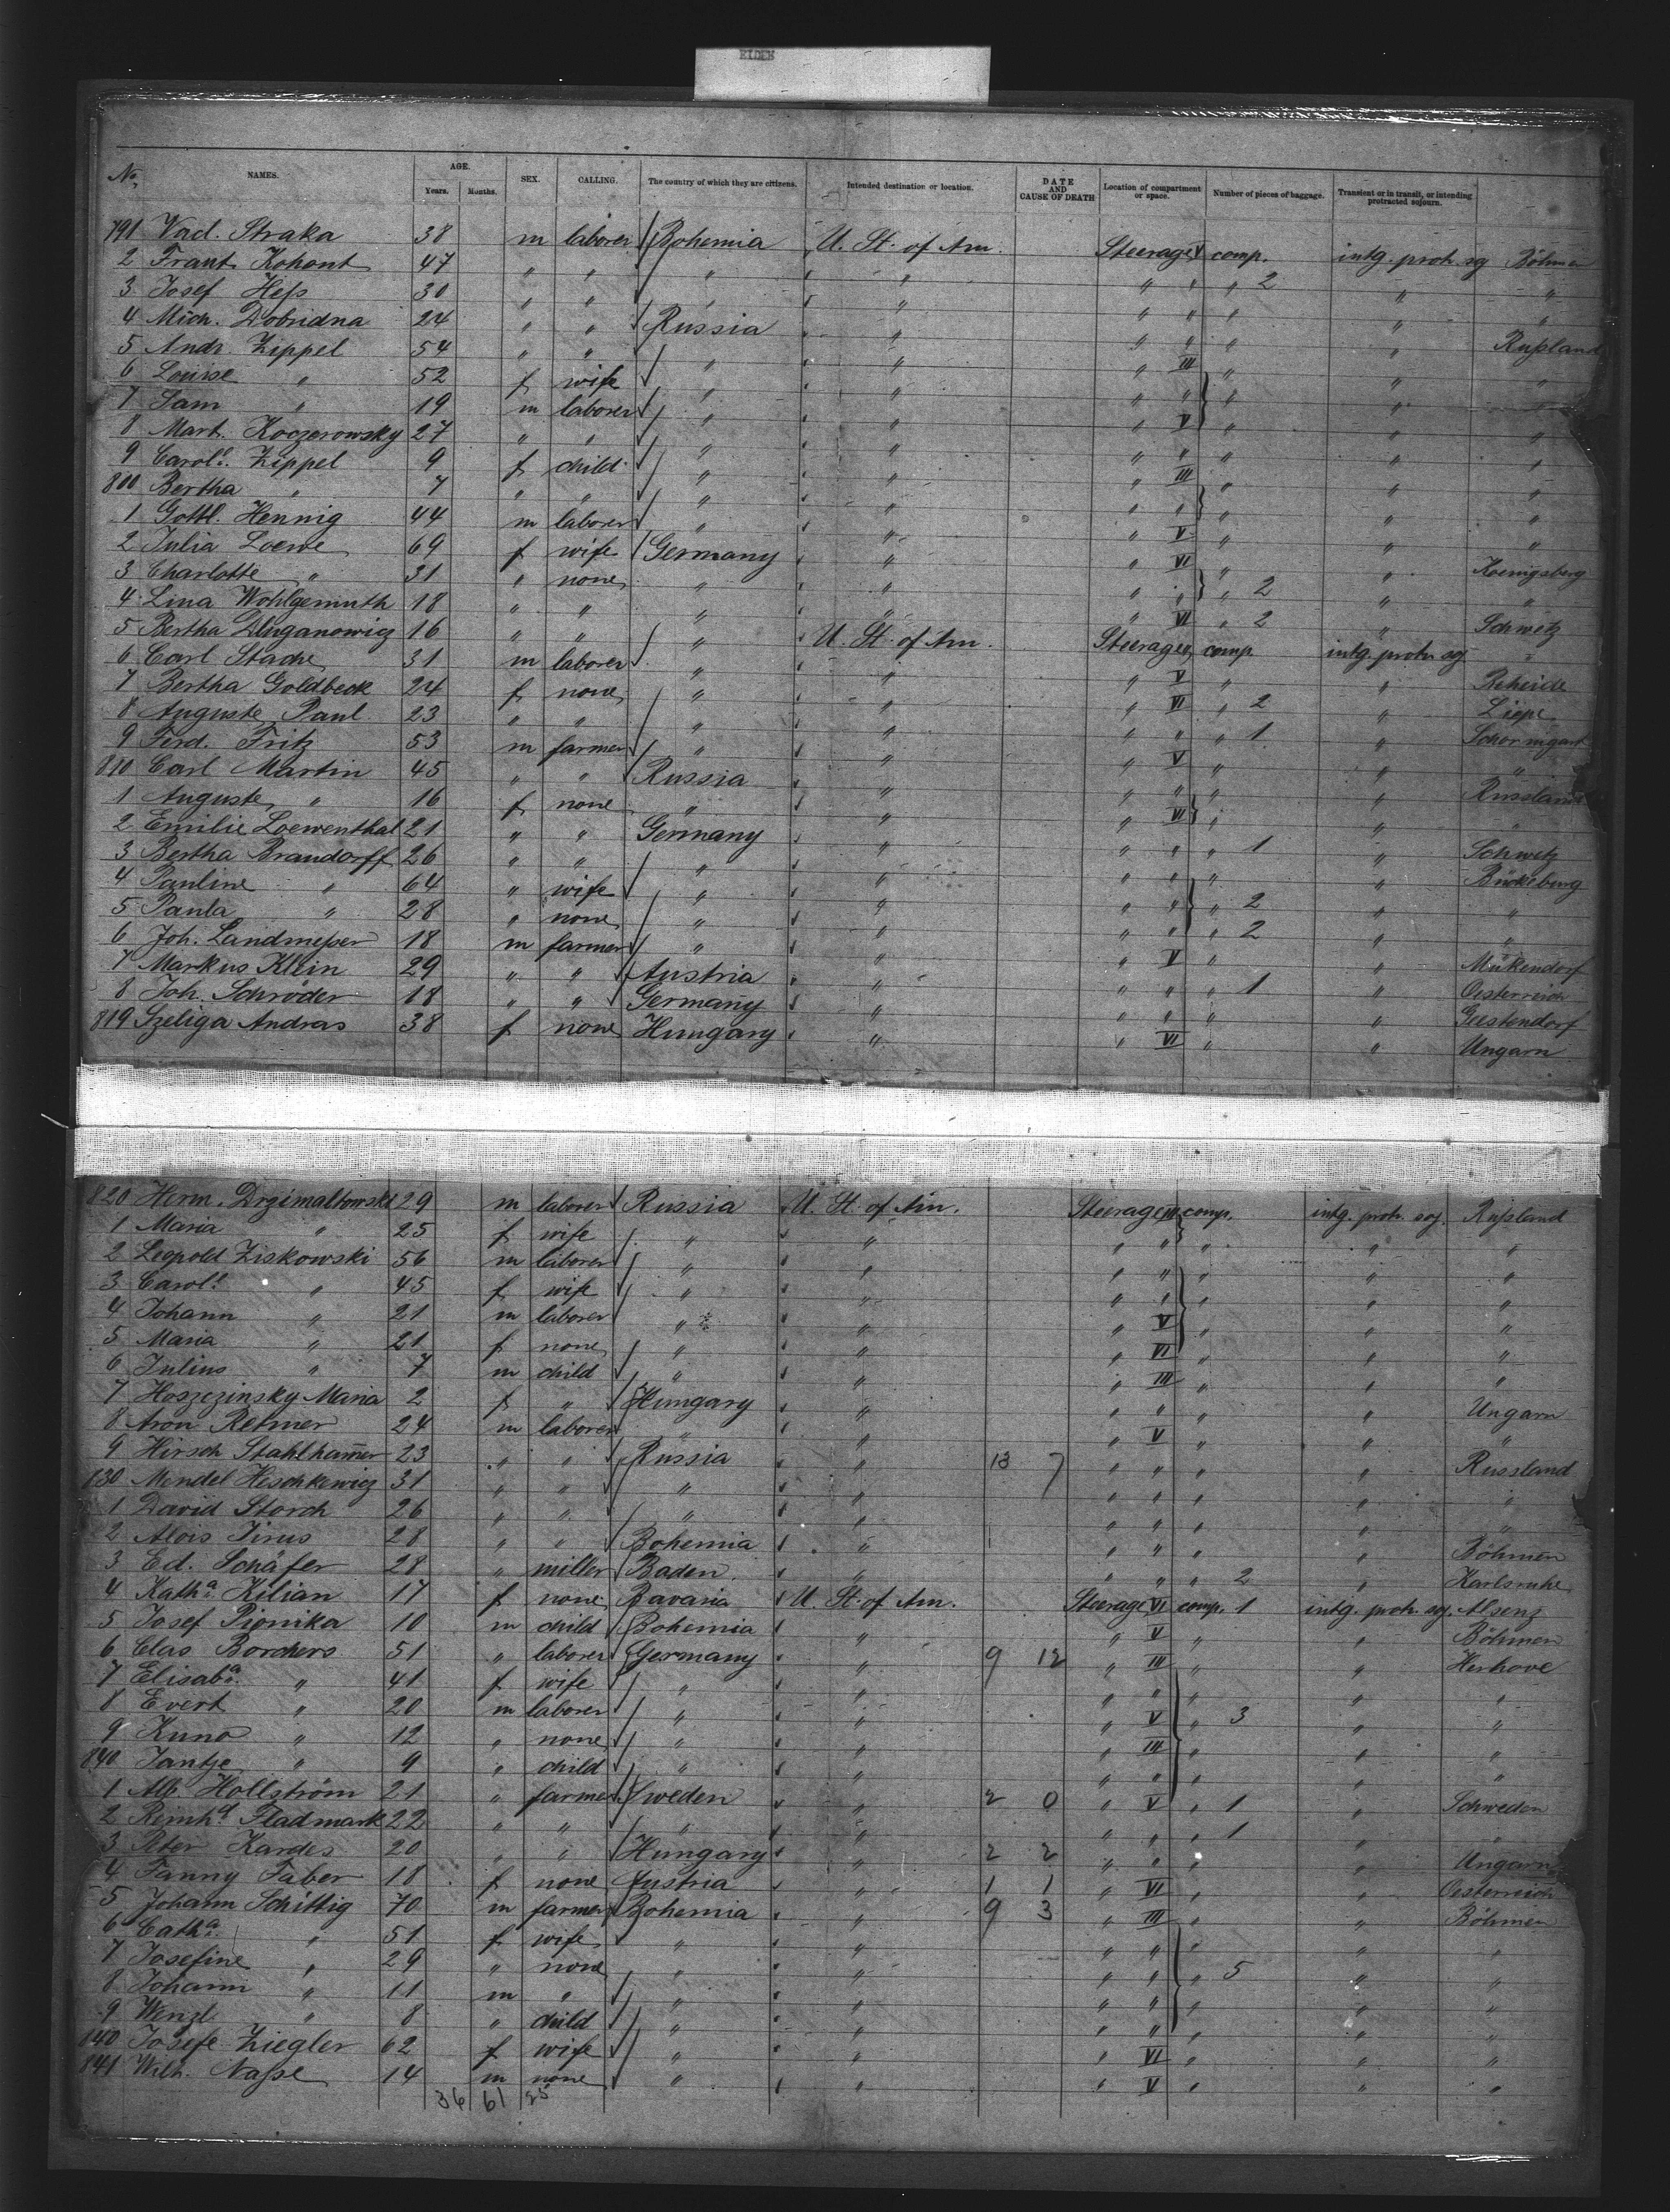 EIDEN
No. NAMES. AGE. Years. Months. SEX. CALLING. The country of which they are citizens. Intended destination or location. DATE AND CAUSE OF DEATH Location of compartment or space. Number of pieces of baggage. Transient or in transit, or intending protracted sojourn.
791 Vacl. Straka 38 m laborer Bohemia U. St. of Am. Steerage V comp. intg. protr. sg Böhmen
2 Frant. Kohout 47 " " " " " " " 2 " "
3 Josef Heſs 30 " " " " " " " " "
4 Mich. Dobridna 24 " " Russia " " " " " Rußland
5 Andr. Zippel 54 " " " " " III " " "
6 Louise " 52 f wife " " " " " " "
7 Sam " 19 m laborer " " " V " " "
8 Mart. Koczerowsky 27 " " " " " " " " "
9 Carole. Zippel 9 f child " " " III " " "
800 Bertha " 7 " " " " " " " " "
1 Gottl. Hennig 44 m laborer " " " V " " "
2 Julia Loewe 69 f wife Germany " " VI " " Koenigsberg
3 Charlotte " 31 " none " " " " " 2 " "
4 Lina Wohlgemuth 18 " " " " " VI " 2 " Schwetz
5 Bertha Dluganowicz 16 " " " U. St. of Am. Steerage comp. intg. protr. sg "
6 Carl Stache 31 m laborer " " " V " "
7 Bertha Goldbeck 24 f none " " " VI " 2 " Liepe
8 Auguste Paul 23 " " " " " " " 1 "
9 Ferd. Fritz 53 m farmer " " " V " " "
810 Carl Martin 45 " " Russia " " " " " Russland
1 Auguste " 16 f none " " " VI " " "
2 Emilie Loewenthal 21 " " Germany " " " " 1 " Schwetz
3 Bertha Brandorff 26 " " " " " " " " Bückeburg
4 Pauline " 64 " wife " " " " " 2 " "
5 Paula " 28 " none " " " " " 2 " "
6 Joh. Landmeſser 18 m farmer " " " V " " Mükendorf
7 Markus Klein 29 " " Austria " " " " 1 " Oesterreich
8 Joh. Schröder 18 " " Germany " " " " " Geestendorf
819 Szeliga Andras 38 f none Hungary " " VI " " Ungarn
820 Herm. Drzimaltowski 29 m laborer Russia U. St. of Am. Steerage comp. intg. protr. soj. Rußland
1 Maria " 25 f wife " " " " " " "
2 Leopold Ziskowski 56 m laborer " " " " " " "
3 Carole. " 45 f wife " " " " " " "
4 Johann " 21 m laborer " " " V " " "
5 Maria " 21 f none " " " VI " " "
6 Julius " 7 m child " " " III " " "
7 Hoszezinsky Maria 2 f " Hungary " " " " " Ungarn
8 Aron Retmer 24 m laborer " " " V " " "
9 Hirsch Stahlham̄er 23 " " Russia " 13 7 " " " " Russland
830 Mendel Heschkewicz 31 " " " " " " " " "
1 David Storch 26 " " " " " " " " "
2 Alois Jirus 28 " " Bohemia " " " " " Böhmen
3 Ed. Schäfer 28 " miller Baden " " " " 2 " Karlsruhe
4 Katha. Kilian 17 f none Bavaria U. St. of Am. Steerage VI comp. 1 intg. protr. soj. Alsenz
5 Josef Pionika 10 m child Bohemia " " V " " Böhmen
6 Clas Borchers 51 " laborer Germany " 9 12 " III " " Herhove
7 Elisaba. " 41 f wife " " " " " " "
8 Evert " 20 m laborer " " " V " 3 " "
9 Kuno " 12 " none " " " III " " "
840 Jantje " 9 " child " " " " " " "
1 Alb. Hollström 21 " farmer Sweden " 2 0 " V " 1 " Schweden
2 Reinhd. Fladmark 22 " " " " " " " 1 " "
3 Peter Kardes 20 " " Hungary " 2 2 " " " " Ungarn
4 Fanny Faber 18 f none Austria " 1 1 " VI " " Oesterreich
5 Johann Schittig 70 m farmer Bohemia " 9 3 " III " " Böhmen
6 Catha. " 51 f wife " " " " " " "
7 Josefine " 29 " none " " " " " 5 " "
8 Johann " 11 m " " " " " " " "
9 Wenzl " 8 " child " " " " " " "
840 Josefe Ziegler 62 f wife " " " VI " " "
841 Wilh. Naſse 14 m none " " " V " " "
36 61 25